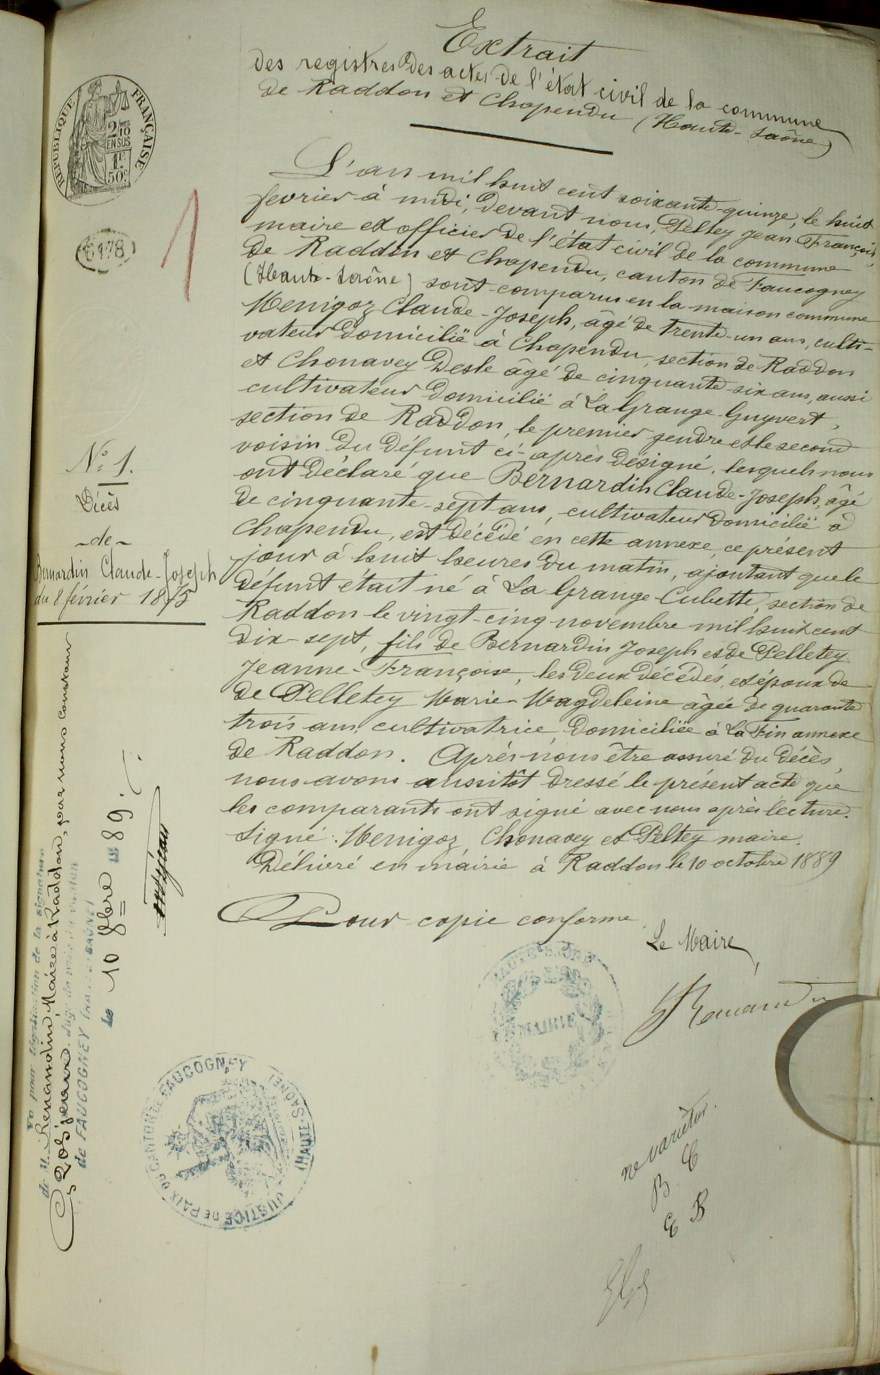 Extrait
des registres des actes de l'état civil de la commune
de Raddon et Chapendu (Haute-Saône)
RÉPUBLIQUE FRANÇAISE
2/10
EN SUS
1F
50c
6178
1
L'an mil huit cent soixante-quinze, le huit
fevrier à midi, devant nous, Peltey Jean François,
maire et officier de l'état civil de la commune
de Raddon et Chapendu, canton de Faucogney
(Haute-Saône) sont comparus en la maison commune
Menigoz Claude-Joseph, âgé de trente-un ans, culti-
vateur domicilié à Chapendu, section de Raddon
et Chonavey Desle âgé de cinquante six ans, aussi
cultivateur domicilié à La Grange Guyvert,
section de Raddon, le premier gendre et le second
voisin du défunt ci-après désigné, lesquels nous
ont déclaré que Bernardin Claude-Joseph, âgé
de cinquante-sept ans, cultivateur domicilié à
Chapendu, est décédé en cette annexe, ce présent
jour à huit heures du matin, ajoutant que le
défunt était né à La Grange-Cubette, section de
Raddon le vingt-cinq novembre mil huit cent
dix-sept, fils de Bernardin Joseph et de Pelletey
Jeanne-Françoise, les deux décédés, et époux de
de Pelletey Marie-Magdeleine âgée de quarante
trois ans, cultivatrice domiciliée à La Fin annexe
de Raddon. Après nous être assuré du décès,
nous avons aussitôt dressé le présent acte que
les comparants ont signé avec nous après lecture.
Signé: Menigoz, Chonavey et Peltey maire.
Délivré en mairie à Raddon le 10 octobre 1889
Pour copie conforme
Le Maire,
N° 1.
Décès
-de-
Bernardin Claude-Joseph
du 8 février 1875
Vu pour légalisation de la signature
de M. Renardin, Maire à Raddon, par nous
de FAUCOGNEY
le 10 8bre 1889.
HAUTE-SAÔNE
MAIRIE
JUSTICE DE PAIX DU CANTON DE FAUCOGNEY
(HAUTE-SAÔNE)
ne varietur.
B C
C B